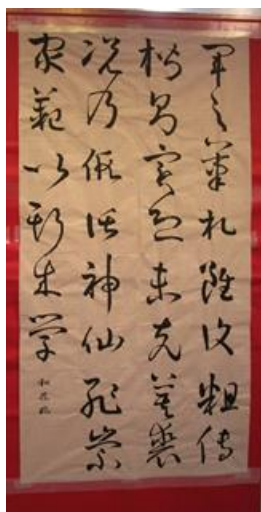 軍之筆札雖復粗傳
楷則實恐未克箕裘
況乃假託神仙恥崇
家範以斯成学